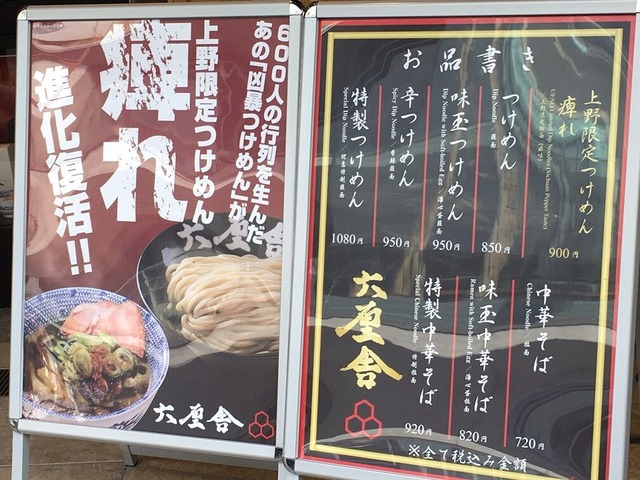 600人の行列を生んだ
あの「凶暴つけめん」が
上野限定つけめん
痺れ
進化復活!!
六厘舎
六厘舎
お品書き
上野限定つけめん
痺れ
900円
つけめん
Dip Noodle
850円
味玉つけめん
Dip Noodle with Soft-boiled Egg
950円
辛つけめん
Spicy Dip Noodle
950円
特製つけめん
Special Dip Noodle
1080円
中華そば
Chinese Noodle
720円
味玉中華そば
Ramen with Soft-boiled Egg
820円
特製中華そば
Special Chinese Noodle
920円
六厘舎
※全て税込み金額